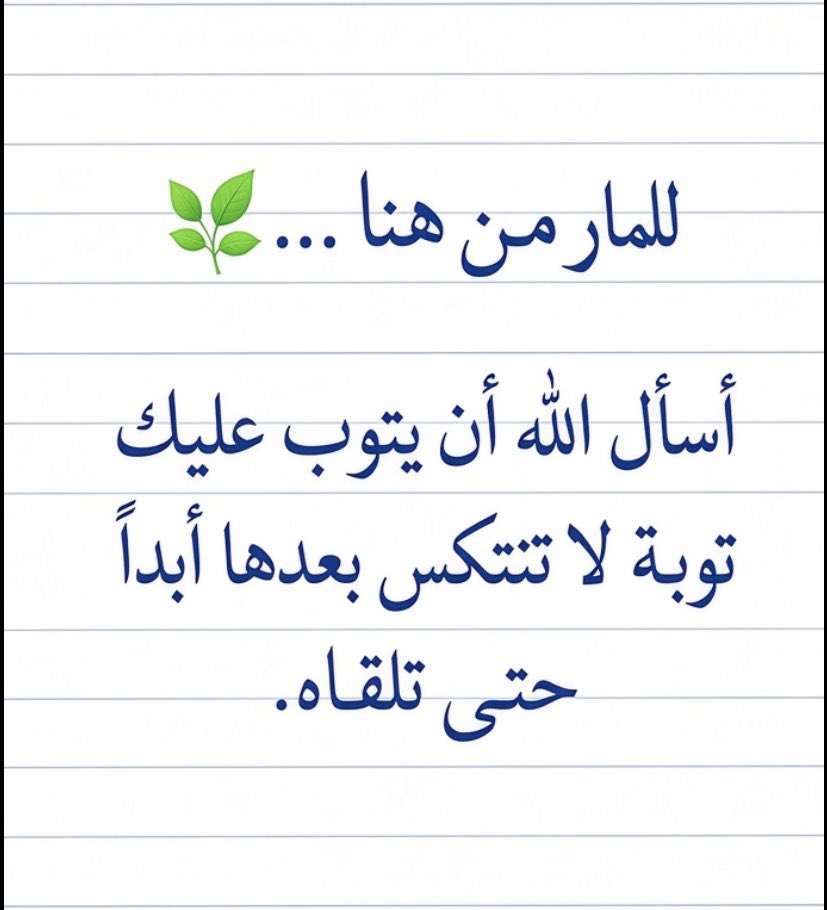 للمار من هنا ...🌿
أسأل الله أن يتوب عليك
توبة لا تنتكس بعدها أبداً
حتى تلقاه.